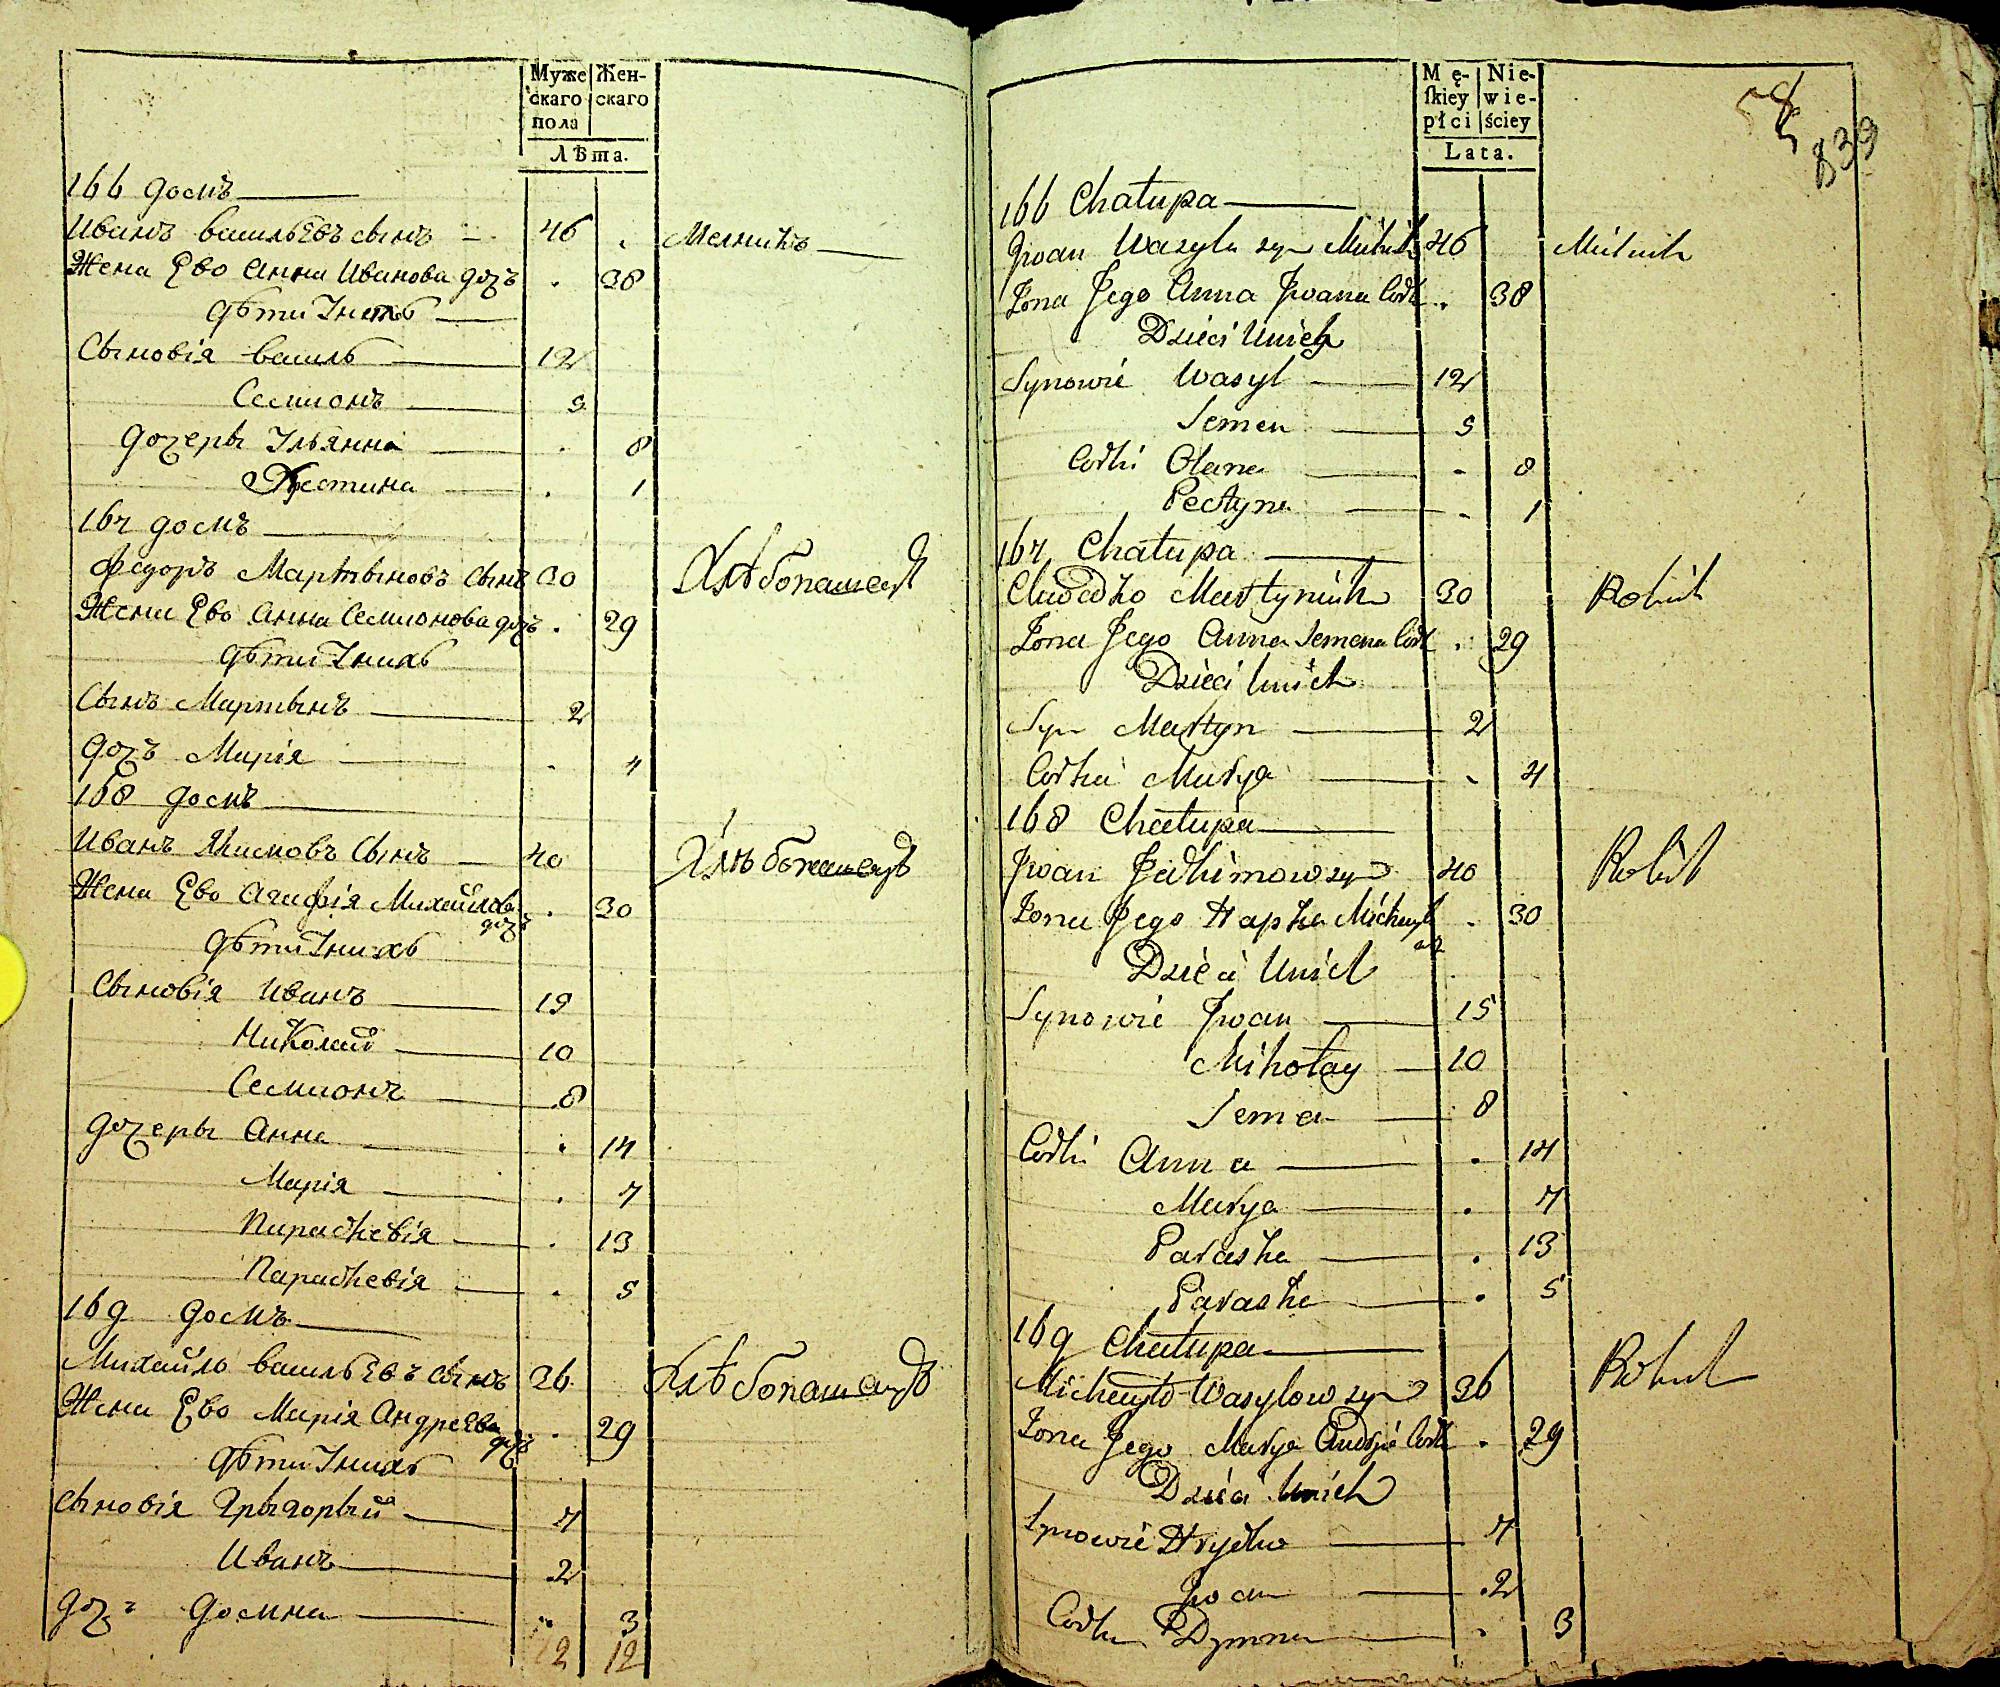 Муже Жен-
скаго скаго
пола
Лѣта.
166 домъ
Иванъ васильевъ сынъ 46 . Мелникъ
Жена Ево Анна Иванова доч . 38
дѣти Унихъ
Сыновія василь 12
Семионъ 5
дочеры Ульянна . 8
. 1
167 домъ
Федоръ Мартыновъ Сынъ 30 Хлѣбопашецъ
Жена Ево Анна Семионова доч . 29
дѣти Унихъ
Сынъ Мартынъ 2
дочъ Марія . 4
168 домъ
Иванъ Якимовъ Сынъ 40 Хлѣбопашецъ
Жена Ево Агафія Михайлова доч . 30
дѣти Унихъ
Сыновія Иванъ 15
Николай 10
Семионъ 8
дочеры Анна . 14
Марія . 7
Параскевія . 13
Параскевія . 5
169 домъ
Михайло васильевъ сынъ 36 Хлѣбопашецъ
Жена Ево Марія Андреева доч . 29
дѣти Унихъ
Сыновія Грыгорый 7
Иванъ 2
дочъ Домна . 3
12 12
Mę- Nie-
ſkiey wie-
płci ściey
Lata.
58
839
166 Chałupa
Jwan Wasyla syn Mielnik 46 Mielnik
Żona Jego Anna Jwana Cork . 38
Dzieci Unich
Synowie Wasyl 12
Semen 5
Corki Olana . 8
Pestyna . 1
167 Chałupa
Chwedko Martyniuk 30 Rolnik
Żona Jego Anna Semena Cork . 29
Dzieci Unich
Syn Martyn 2
Corka Marya . 4
168 Chałupa
Jwan Jakimow syn 40 Rolnik
Żona Jego Hapka Michaył . 30
Dzieci Unich
Synowie Jwan 15
Mikołay 10
Semen 8
Corki Anna . 14
Marya . 7
Paraska . 13
Paraska . 5
169 Chałupa
Michayło Wasylow syn 36 Rolnik
Żona Jego Marya Andrzia Cork . 29
Dzieci Unich
Synowie Hryćko 7
Jwan 2
Corka Dymna . 3